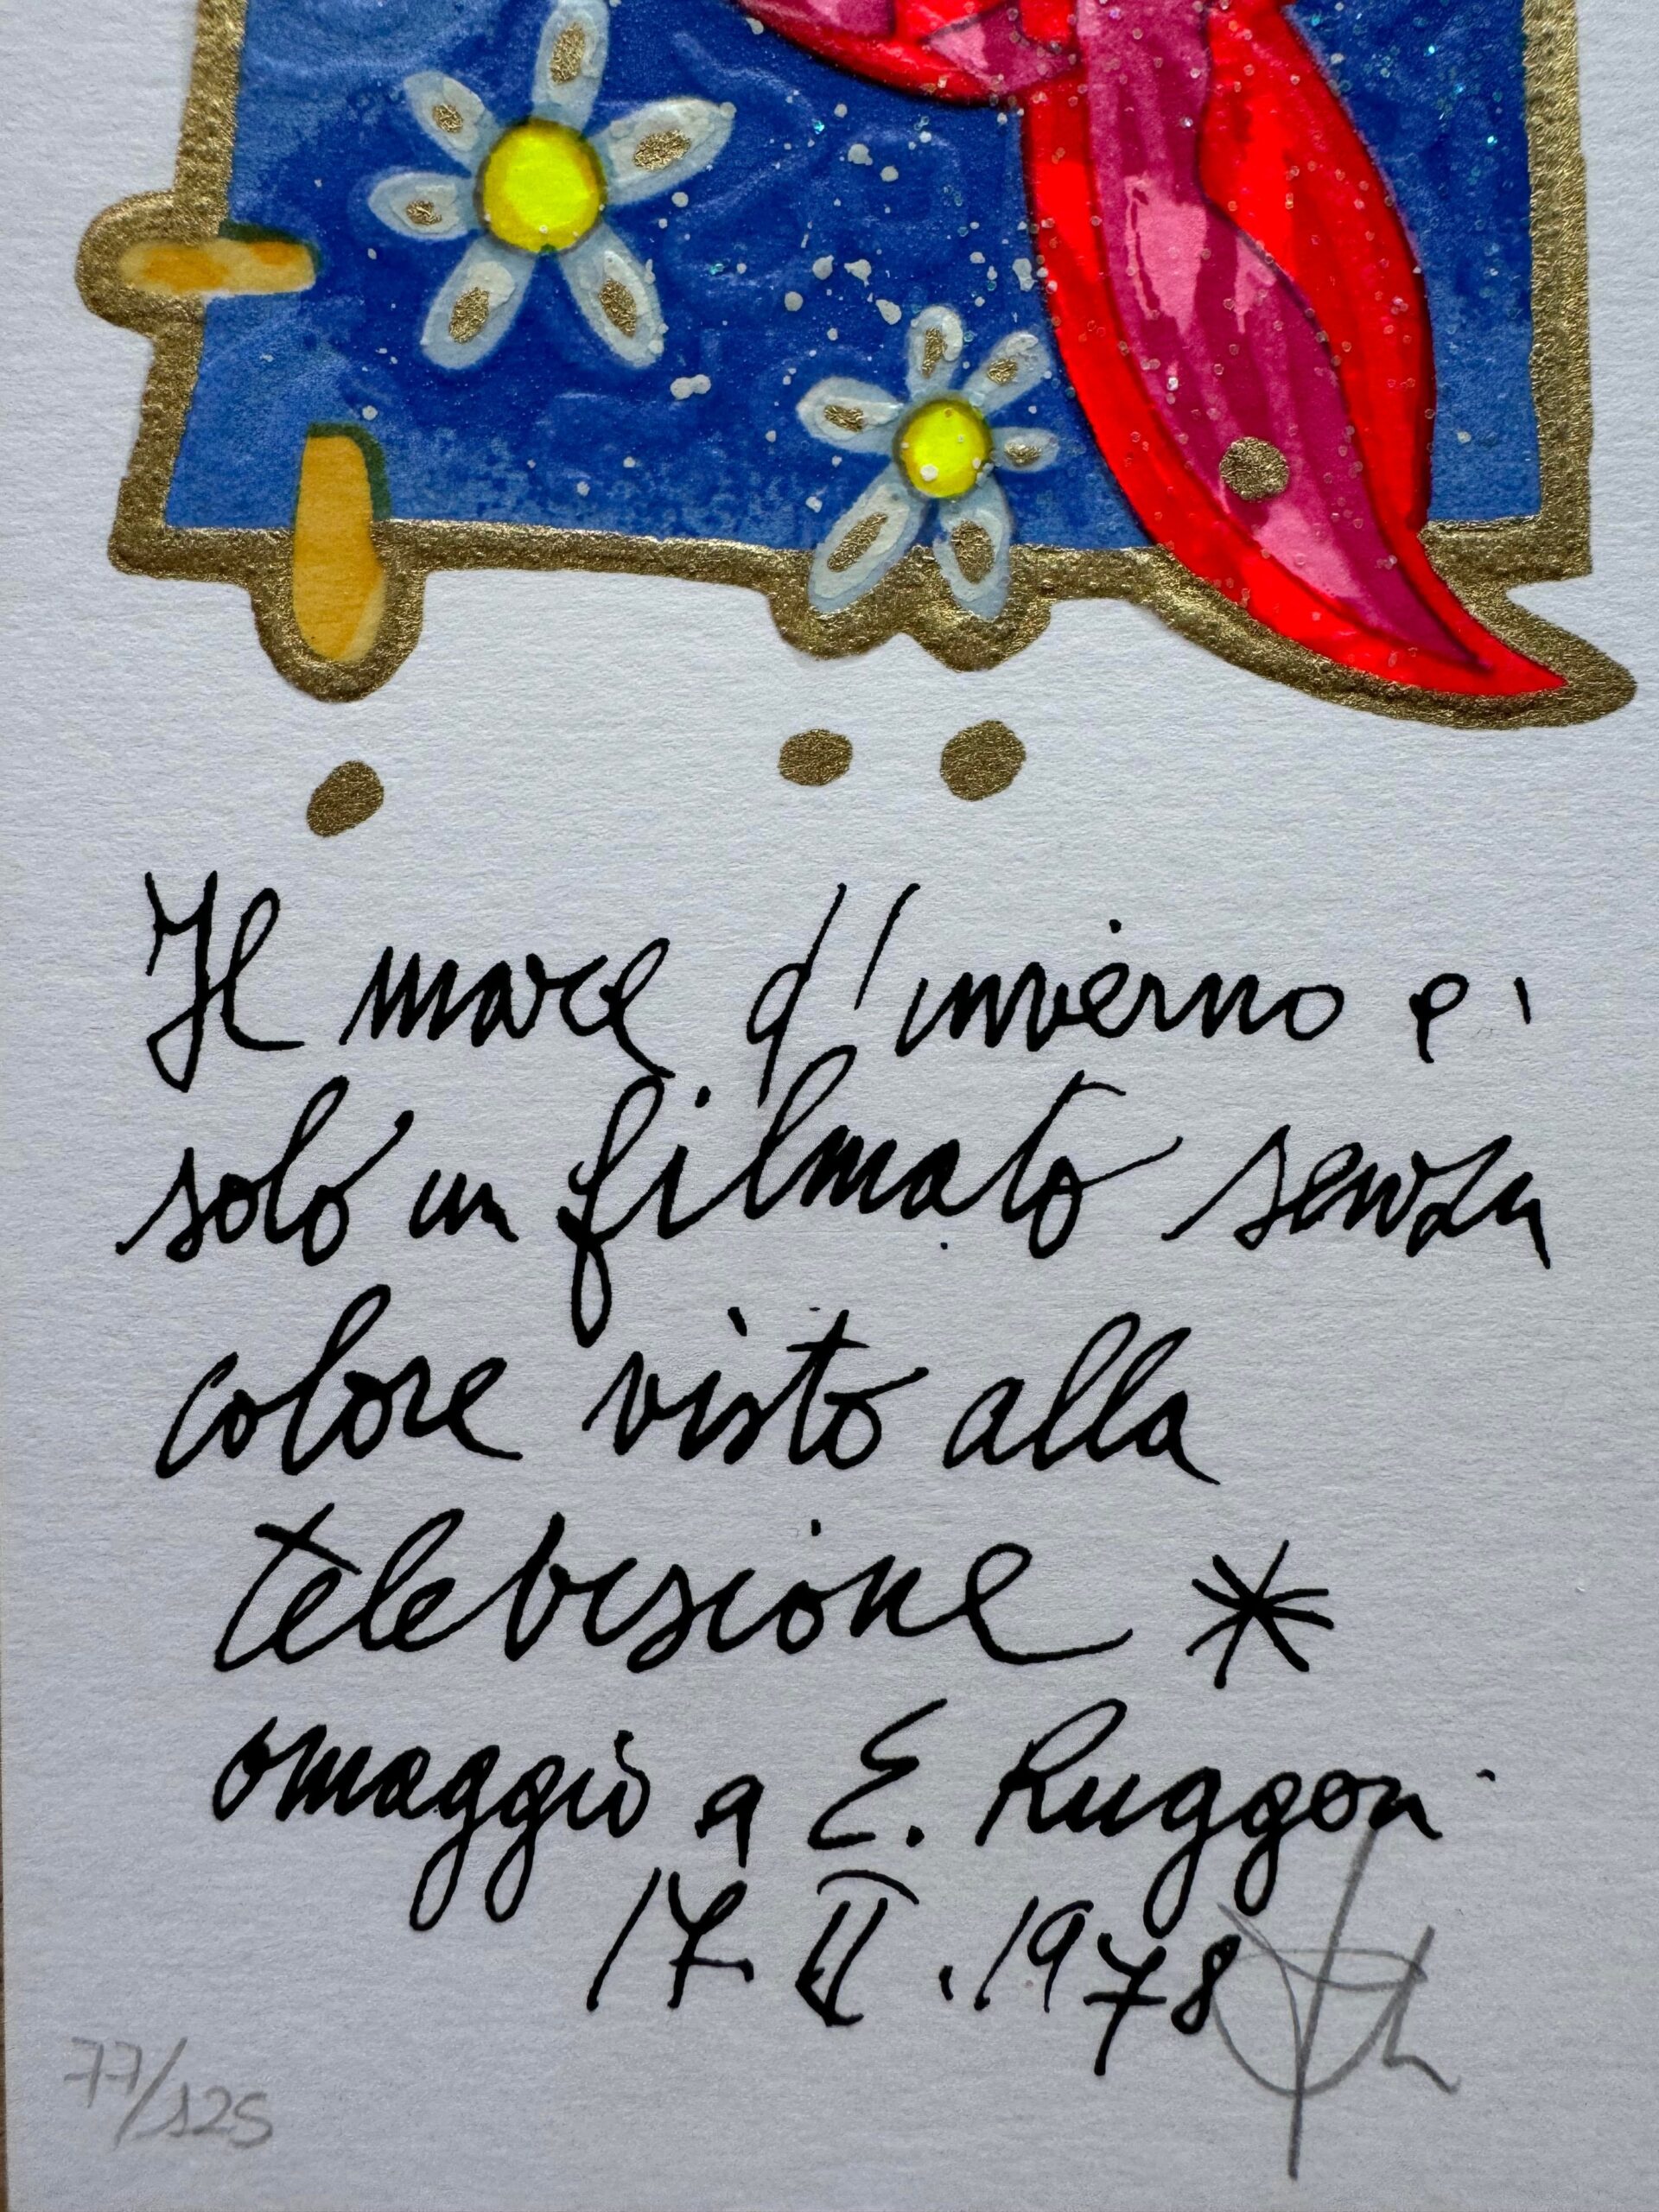 Il mare d'inverno e'
solo un filmato senza
colore visto alla
televisione *
omaggio a E. Ruggeri
17. II . 1978
77/125